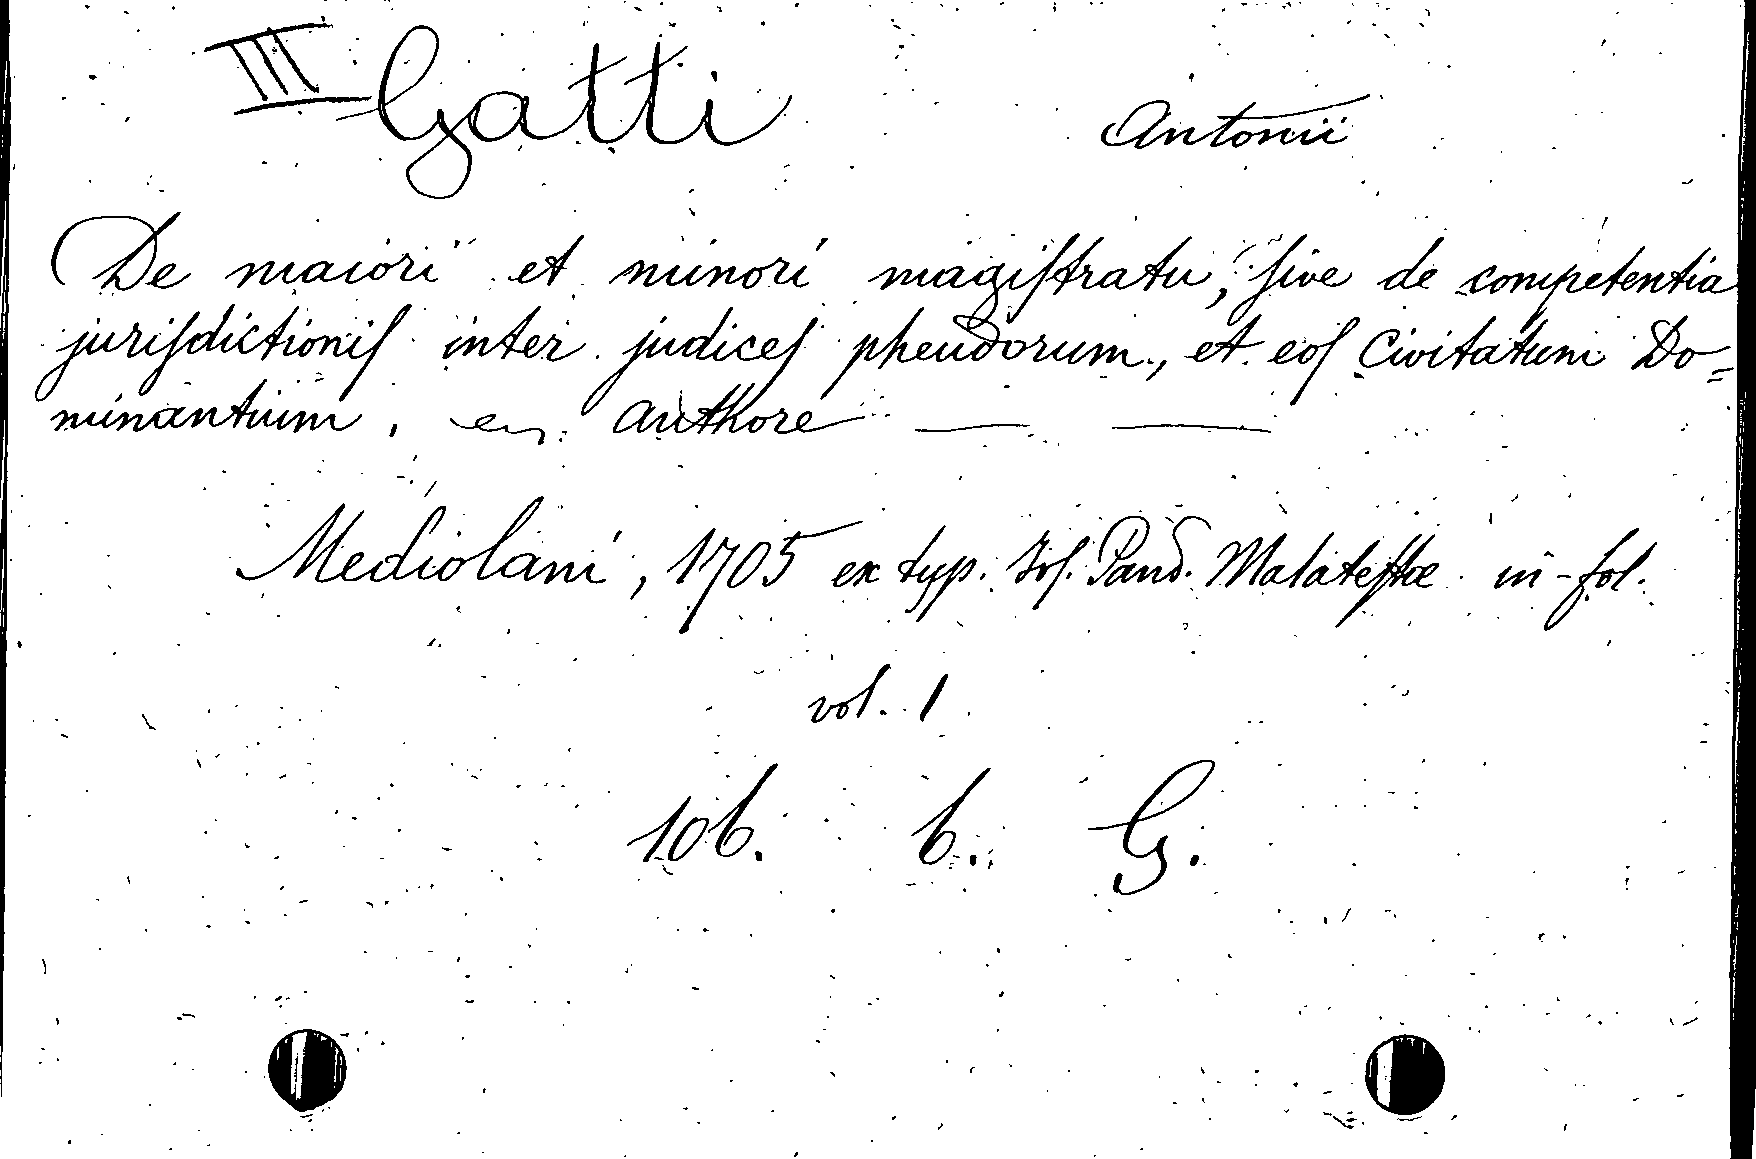 III Gatti Antonii
De maiori et minori magiſtratu, ſive de competentia
juriſdictioniſ inter judiceſ pheudorum, et eoſ Civitatum Do=
minantium, authore — —
Mediolani, 1705 ex typ. Joſ. Pand. Malateſtæ in-fol.
vol. 1
106. 6. G.